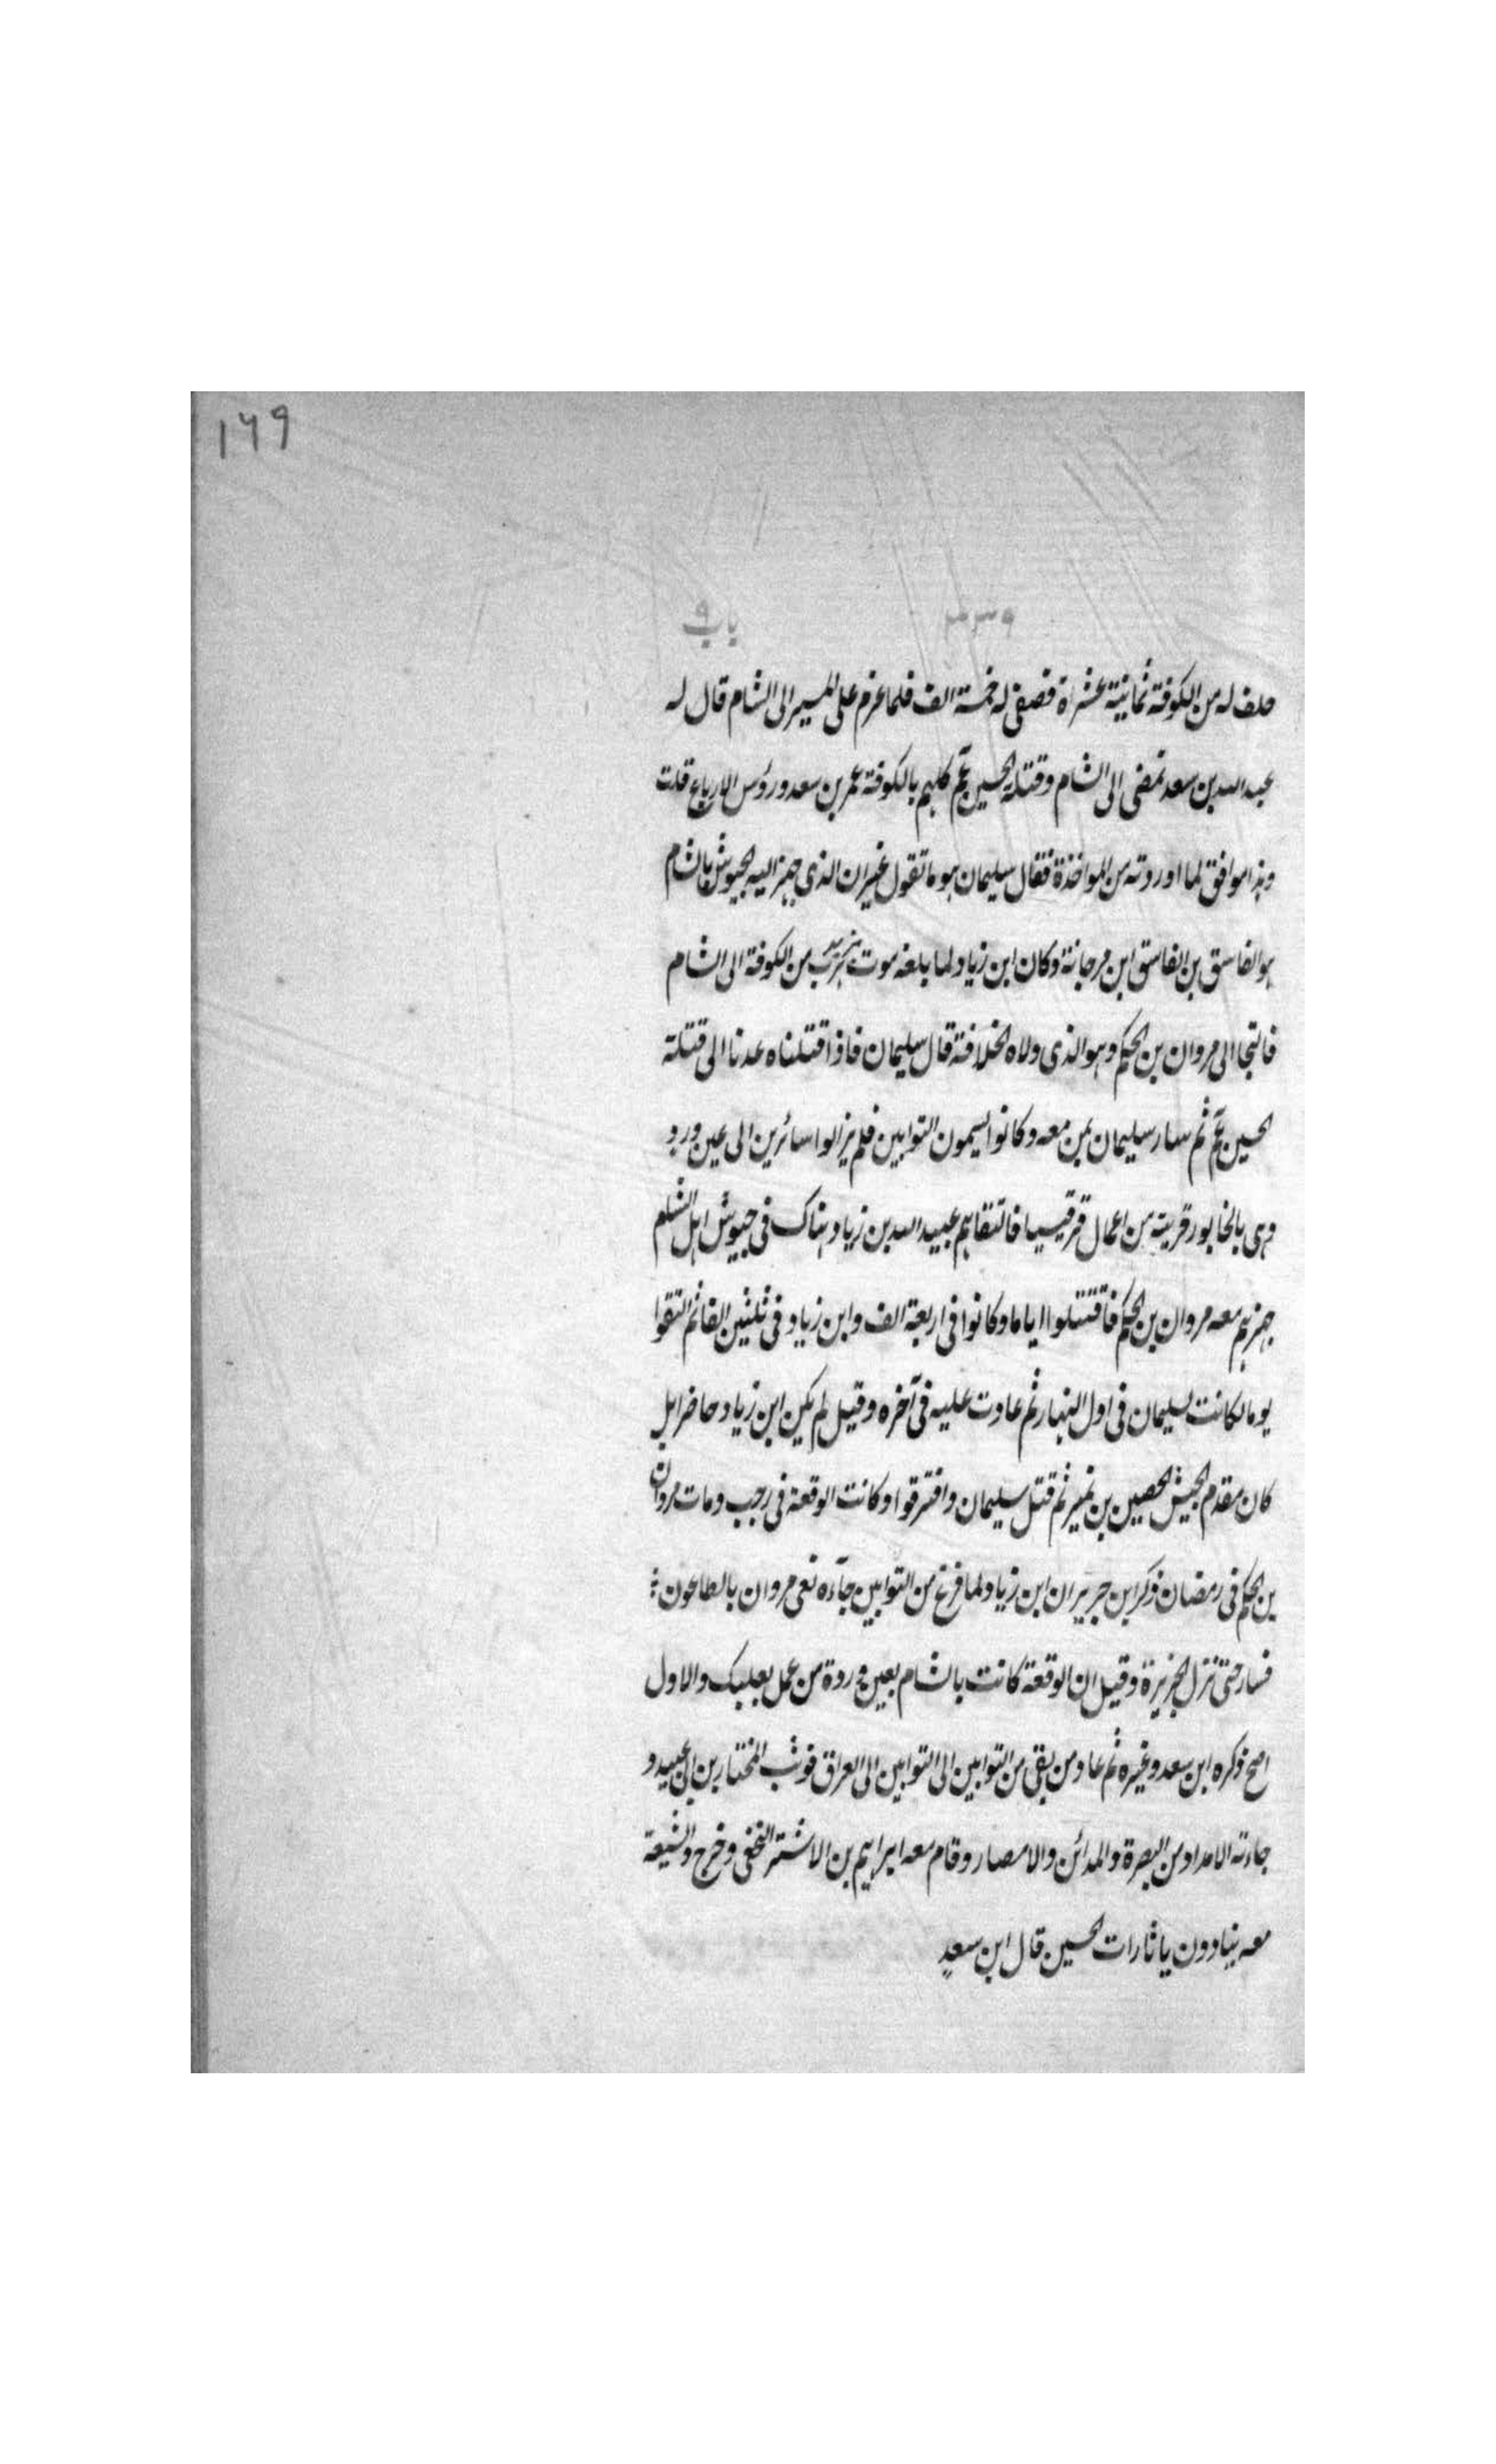 ١٦٩
٣٣٩ باب ٩
حلف له من الكوفة ثمانية عشراة فصفى له خمسة الف فلما عزم على المسير الى الشام قال له
عبد الله بن سعد تمضى الى الشام وقتلة الحسين عم كلهم بالكوفة عمر بن سعد ورؤس الارباع قلت
وهذا موافق لما اوردته من المواخذة فقال سليمان هو ما تقول غير ان الذى جهز اليه الجيوش بالشام
هو الفاسق بن الفاسق ابن مرجانة وكان ابن زياد لما بلغه موت يزيد هرب من الكوفة الى الشام
فالتجا الى مروان بن الحكم وهو الذى ولاه الخلافة قال سليمان فاذا قتلناه عدنا الى قتلة
الحسين عم ثم سار سليمان بمن معه وكانوا يسمون التوابين فلم يزالوا سائرين الى عين ورد
وهى بالخابور قرية من اعمال قرقيسيا فالتقاهم عبيد الله بن زياد هناك فى جيوش اهل الشام
جهزهم معه مروان بن الحكم فاقتتلوا اياما وكانوا فى اربعة الف وابن زياد فى ثلثين الفا ثم التقوا
يوما لكانت لسليمان فى اول النهار ثم عادت عليه فى آخره وقيل لم يكن ابن زياد حاضرا بل
كان مقدم الجيش الحصين بن نمير ثم قتل سليمان وافترقوا وكانت الوقعة فى رجب ومات مروان
بن الحكم فى رمضان ذكر ابن جرير ان ابن زياد لما فرغ من التوابين جآءه نعى مروان بالطاعون
فسار حتى نزل الجزيرة وقيل ان الوقعة كانت بالشام بعين وردة من عمل بعلبك والاول
اصح ذكره ابن سعد وغيره ثم عاد من بقى من التوابين الى التوابين الى العراق فوثب المختار بن ابى عبيد و
جاءته الامداد من البصرة والمدائن والامصار وقام معه ابراهيم بن الاشتر النخعى وخرج والشيعة
معه ينادون يا ثارات الحسين قال ابن سعد